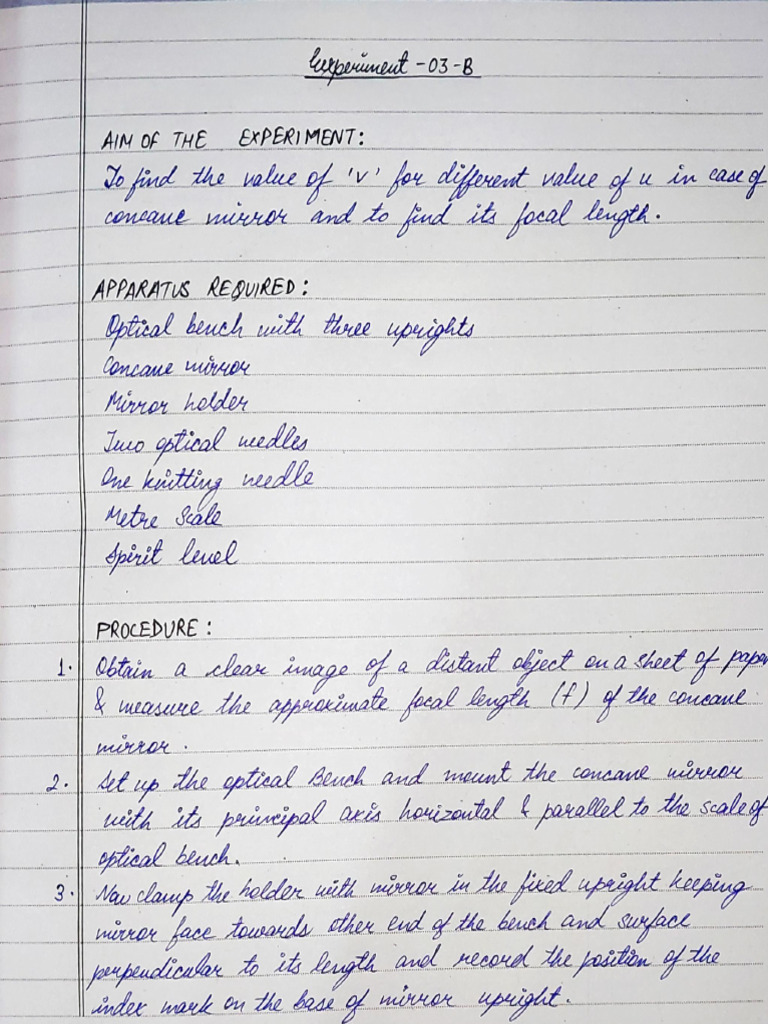 Experiment - 03 - B
AIM OF THE EXPERIMENT:
To find the value of 'v' for different value of u in case of
concave mirror and to find its focal length.
APPARATUS REQUIRED:
Optical bench with three uprights
Concave mirror
Mirror holder
Two optical needles
One knitting needle
Metre Scale
Spirit level
PROCEDURE:
1. Obtain a clear image of a distant object on a sheet of paper
& measure the approximate focal length (f) of the concave
mirror.
2. Set up the optical Bench and mount the concave mirror
with its principal axis horizontal & parallel to the scale of
optical bench.
3. Now clamp the holder with mirror in the fixed upright keeping
mirror face towards other end of the bench and surface
perpendicular to its length and record the position of the
index mark on the base of mirror upright.